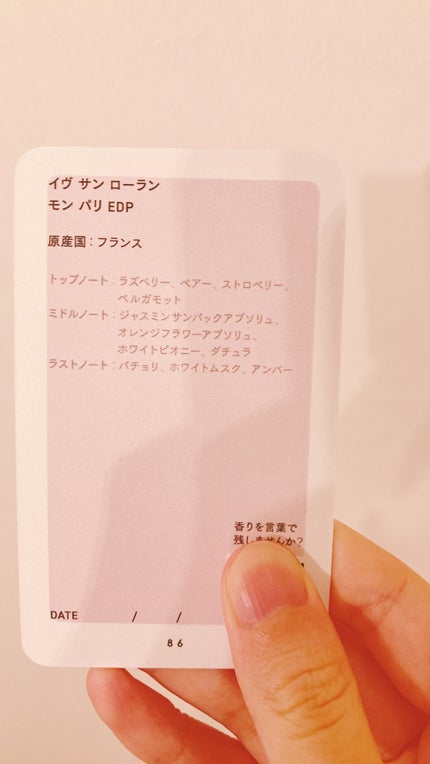 イヴ サン ローラン
モン パリ EDP
原産国：フランス
トップノート：ラズベリー、ペアー、ストロベリー、
ベルガモット
ミドルノート：ジャスミンサンバックアブソリュ、
オレンジフラワーアブソリュ、
ホワイトピオニー、ダチュラ
ラストノート：パチョリ、ホワイトムスク、アンバー
香りを言葉で
残しませんか?
DATE / /
86